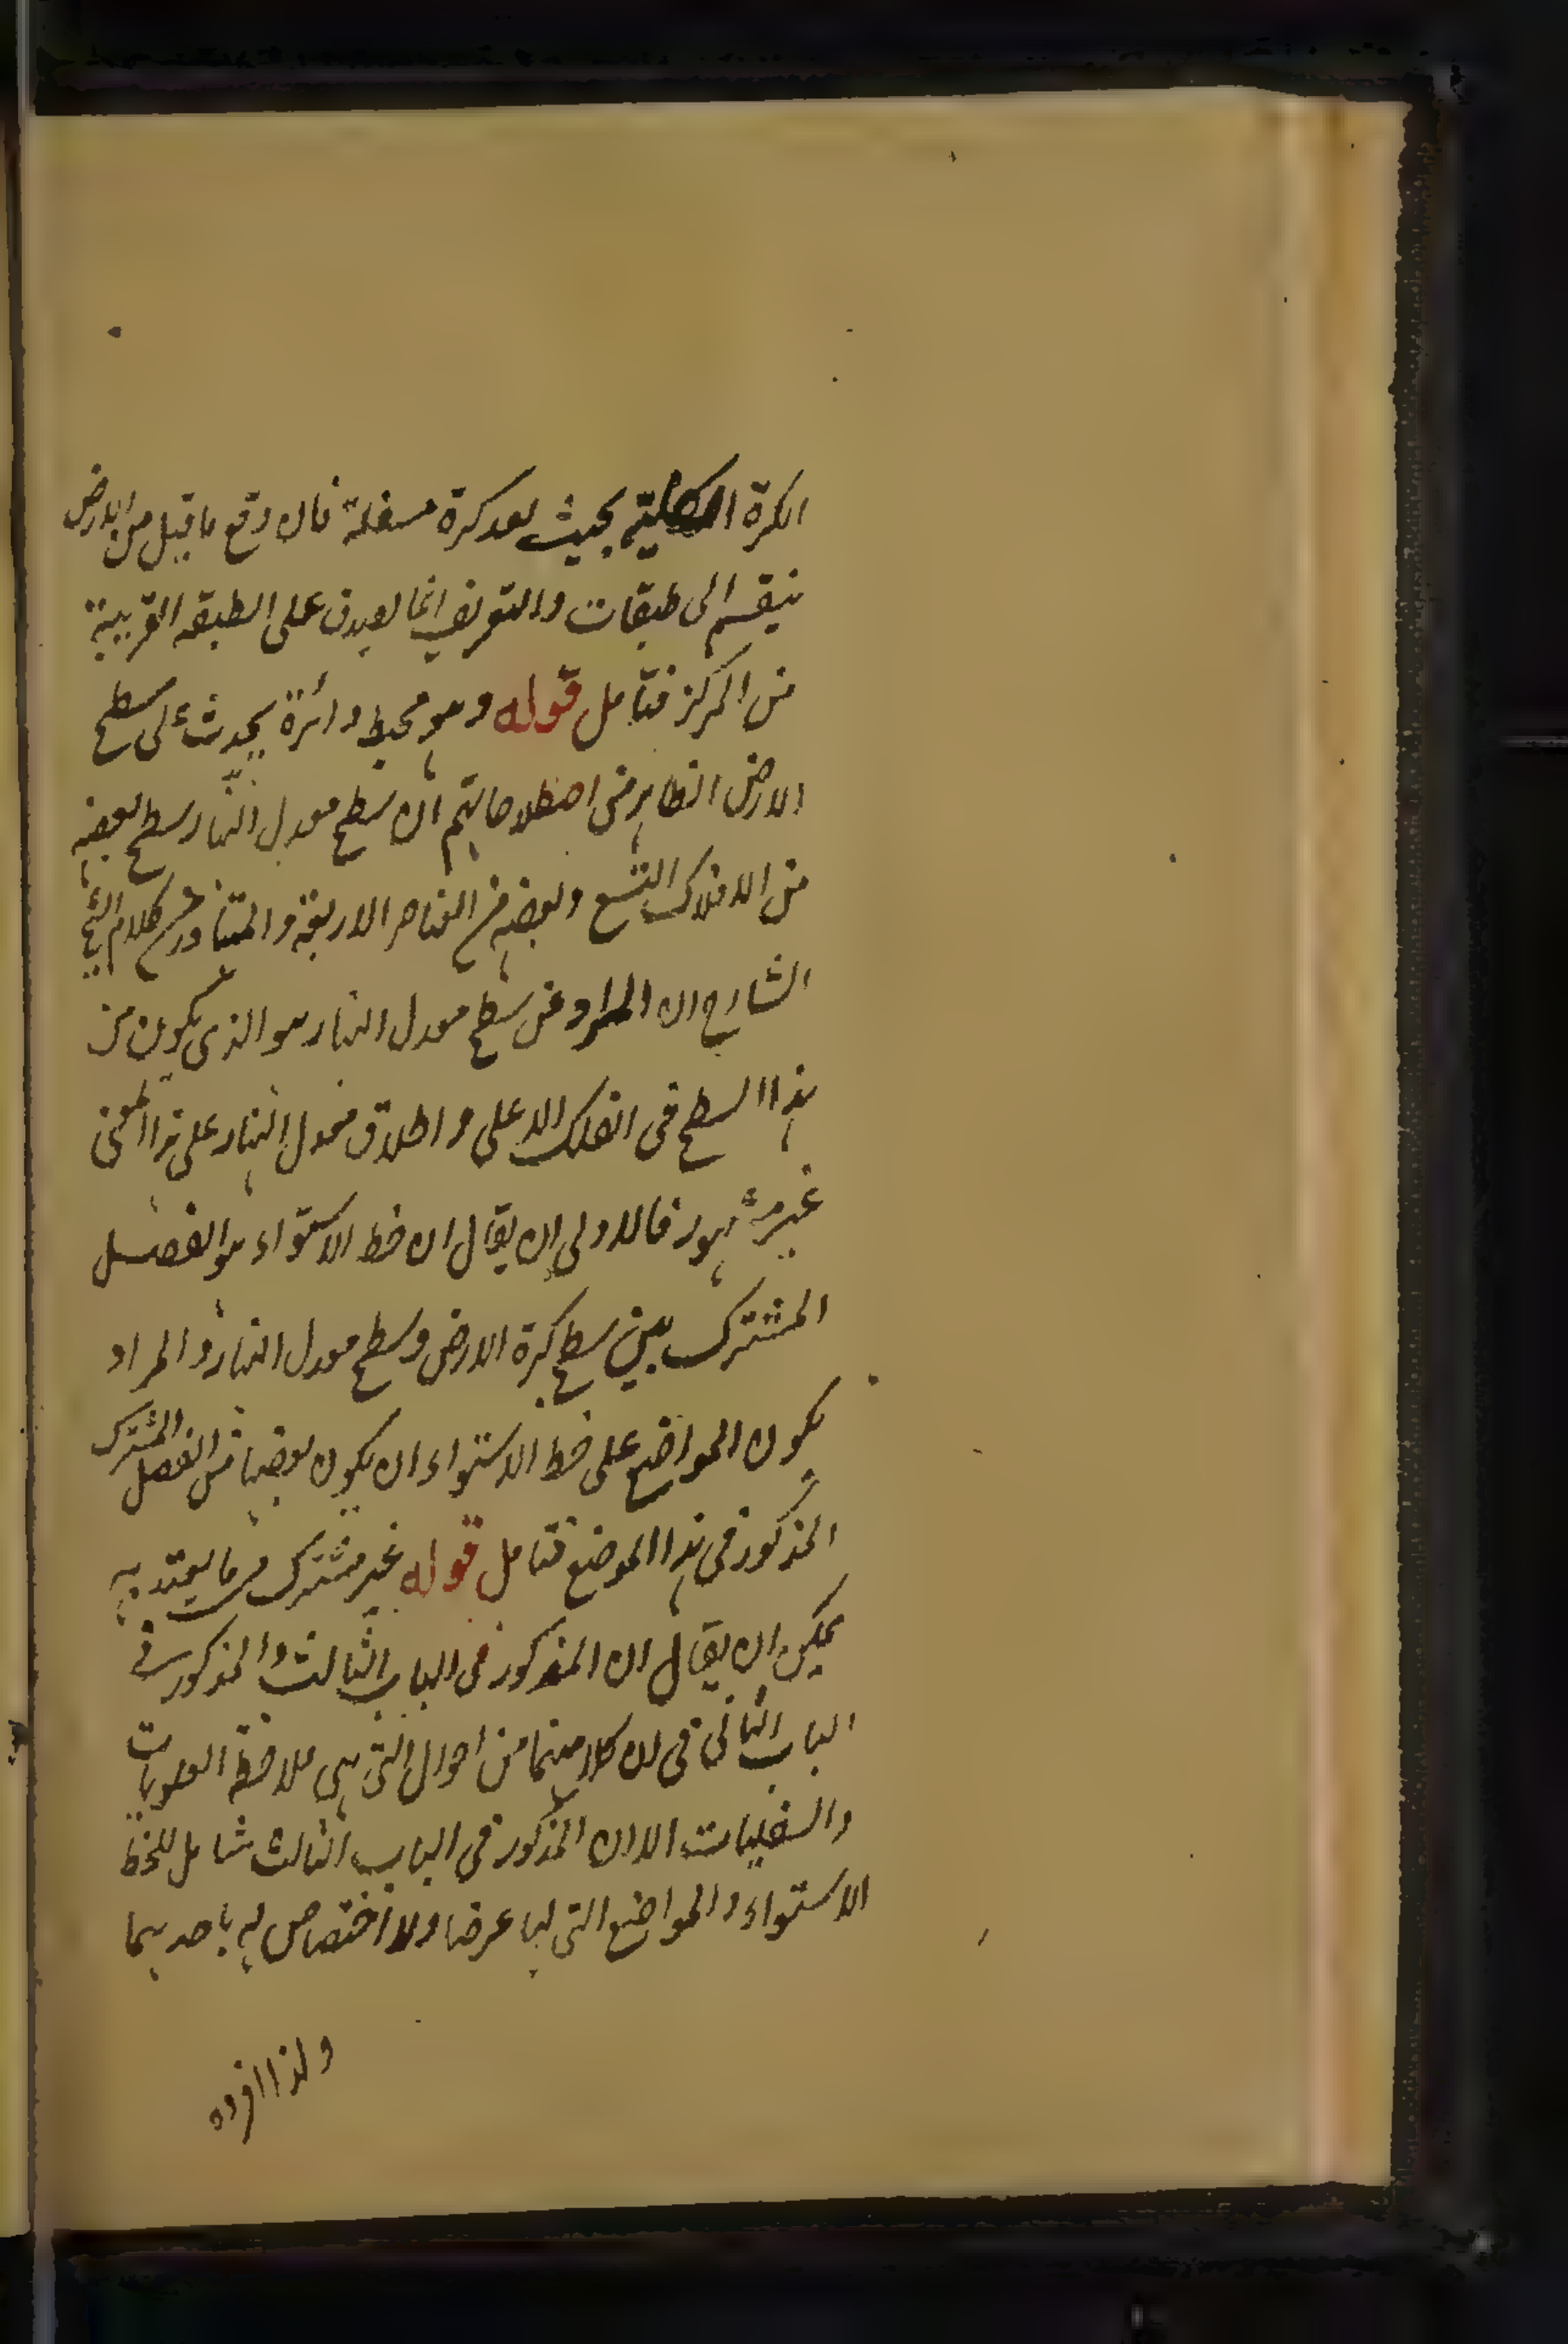 الكرة الكلية بحيث يعد كرة مستقلة فان وقع ما قيل من ان الارض
ينقسم الى طبقات والتعريف انما يصدق على الطبقه القريبة
من المركز فتامل قوله وهو محيط دائرة يحدث على سطح
الارض الظاهر من اصطلاحاتهم ان سطح معدل النهار سطح بعضه
من الافلاك التسع وبعضه من العناصر الاربعة والمتبادر من كلام
الشارح ان المراد من سطح معدل النهار هو الذى يكون من
هذا السطح فى الفلك الاعلى واطلاق معدل النهار على هذا المعنى
غير مشهور فالاولى ان يقال ان خط الاستواء هو الفصل
المشترك بين سطح كرة الارض وسطح معدل النهار والمراد
بكون المواضع على خط الاستواء ان يكون بعضها من الفصل المشترك
المذكور فى هذا الموضع فتامل قوله غير مشترك فيما يعتد به
يمكن ان يقال ان المذكور فى الباب الثالث والمذكور فى
الباب الثانى فى ان كلا منهما من احوال التى هى ملاحظة العلويات
والسفليات الا ان المذكور فى الباب الثالث شامل للخط
الاستواء والمواضع التى لها عرضا ولا اختصاص له باحديهما
ولذا افرده